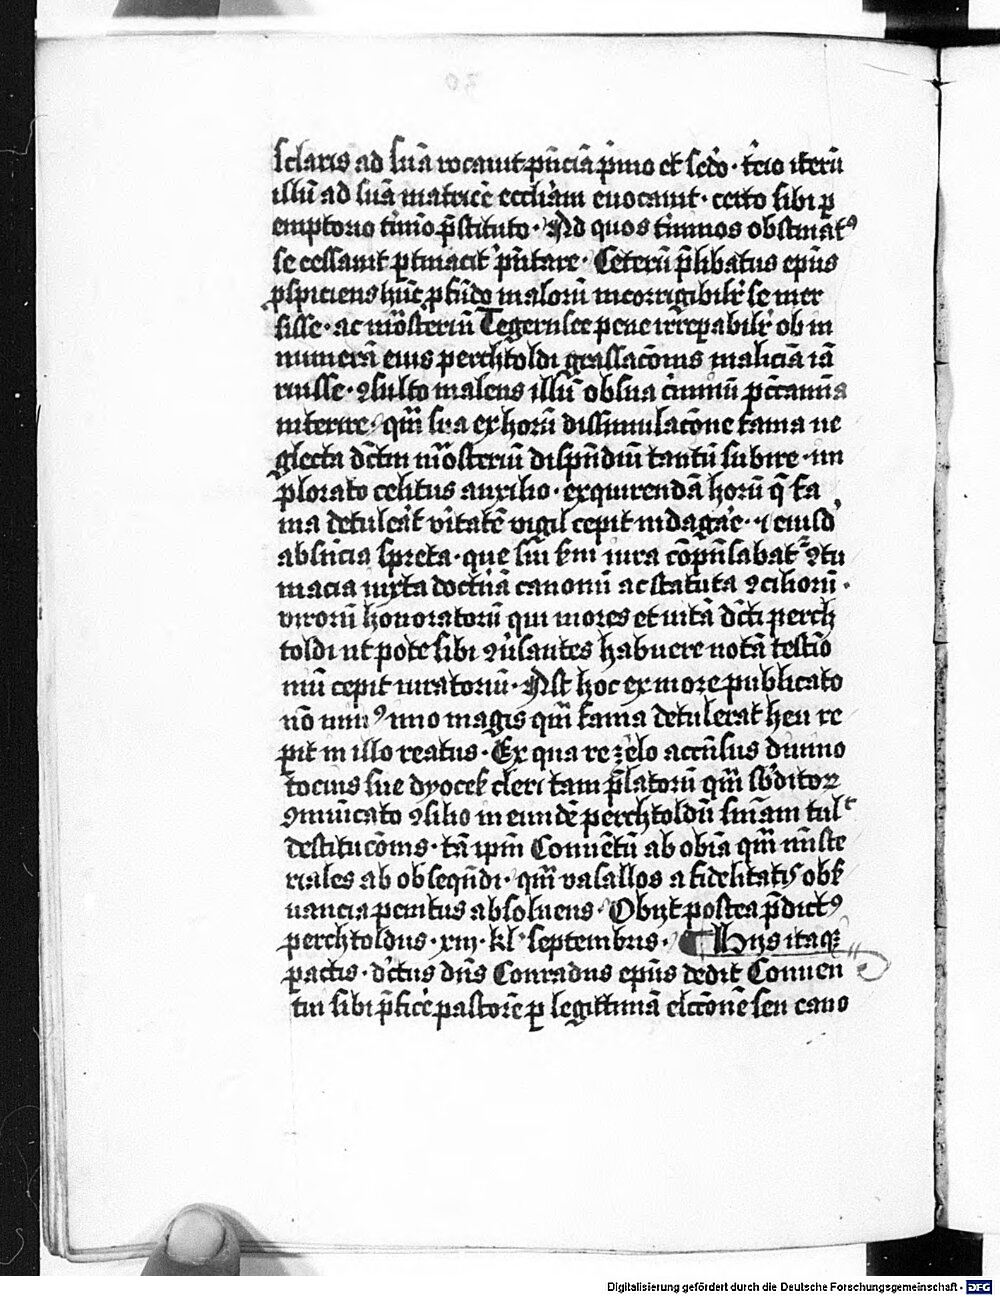 sclaris ad suā vocauit p̄nciā p̄mo et sc̄do · t̄cio iterū
illū ad suā matricē eccl̄iam euocauit · certo sibi ꝑ
emptorio t̄mīo p̄stituto · Ad quos t̄minos obstinatꝰ
se cessauit ꝑtinacit̕ p̄n̄tare · Ceterū p̄libatus ep̄us
ꝑspiciens hūc ꝓfūdo malorū incorrigibilit̕ se mer
sisse · ac mōsteriū Tegernsee pene irrepabilr̕ ob in
numerā eius perchtoldi grassacōnis maliciā iā
ruisse · ꝯsulto malens illū ob sua c̄iminū p̄ccamīa
interire · qm̄ sua ex horū dissimulacōne fama ne
glecta dc̄tm mōsteriū disp̄ndiū tantū subire · im
plorato celitus auxilio · exquirendā horū q̄ fa
ma detulerat v̄itatē vigil cepit indagare · ⁊ eiusd̕
abs̄ncia spreta · que
macia iuxta doctinā canonū ac statuta ꝯcilioꝝ ·
virorū honoratorū qui mores et uitā dc̄ti perch
toldi ut pote sibi ꝯūsantes habuere notā testīo
niū cepit iuratoriū · Ast hoc ex more publicato
nō minꝰ imo magis qm̄ fama detulerat heu re
ꝑit in illo reatus · Ex qua re zelo accēsus diuino
tocius sue dyoceẜ cleri tam p̄latorū qm̄ sb̄ditoꝝ
ꝯmūicato ꝯsilio in eundē perchtoldū sn̄iam tulᵗ
destitucōnis · tā ip̄m Conuētū ab ob̄ia qm̄ mīste
riales ab obseqūdi · qm̄ vasallos a fidelitatis obẜ
uancia penitus absoluens · Obijt postea p̄dictꝰ
perchtoldus · xiij · kl̄ septembris · ¶ Hijs itaqꝫ
ꝑactis · dc̄tus dn̄s Conradus ep̄us dedit Conuen
tui sibi p̄fic̄e pastorē ꝑ legittimā elcc̄onē seu cano
Digitalisierung gefördert durch die Deutsche Forschungsgemeinschaft - DFG